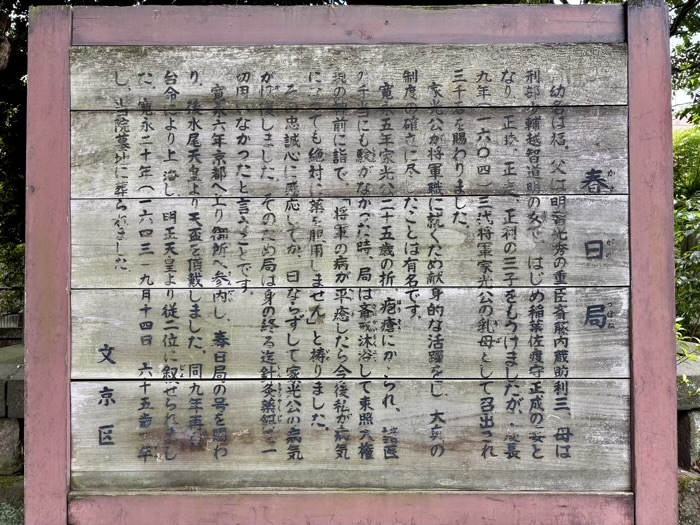 春日局
かすがのつぼね
幼名は福、父は明智光秀の重臣斎藤内蔵助利三、母は
刑部少輔越智道明の女で、はじめ稲葉佐渡守正成の妻と
なり、正勝、正定、正利の三子をもうけましたが、慶長
九年(一六〇四)三代将軍家光公の乳母として召出され
三千石を賜わりました。
家光公が将軍職に就くため献身的な活躍をし、大奥の
制度の確立に尽したことは有名です。
寛永五年家光公二十五歳の折、疱瘡にかゝられ、諸医
の手当にも験がなかった時、局は斎戒沐浴して東照大権
現の神前に詣で、「将軍の病が平癒したら今後私が病気
になっても絶対に薬を服用しません」と祷りました。
その忠誠心に感応してか、日ならずして家光公の病気
が快復しました。そのため局は身の終る迄針灸薬餌を一
切用いなかったと言うことです。
寛永六年京都へ上り御所へ参内し、春日局の号を賜わ
り、後水尾天皇より天盃を頂戴しました。同九年再び
台命により上洛し、明正天皇より従二位に叙せられまし
た。寛永二十年(一六四三)九月十四日 六十五歳で卒
し、当院墓地に葬られました。
文京区